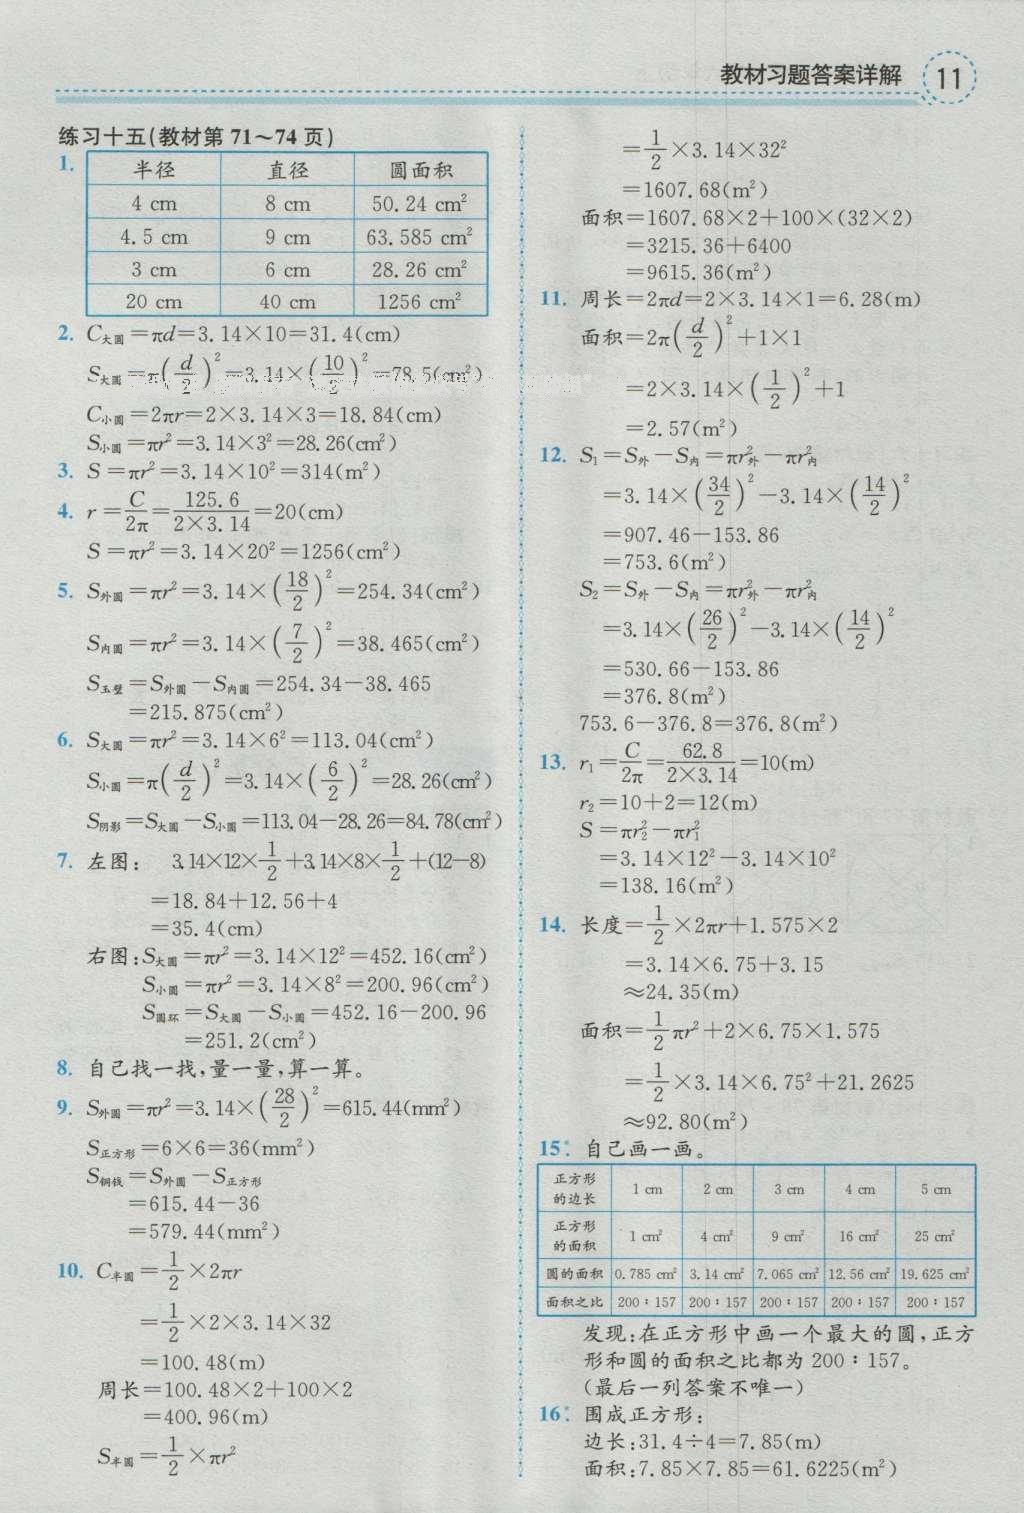 教材习题答案详解 11
练习十五(教材第71～74页)
1.
半径 直径 圆面积
4 cm 8 cm 50.24 cm²
4.5 cm 9 cm 63.585 cm²
3 cm 6 cm 28.26 cm²
20 cm 40 cm 1256 cm²
2. C大圆=πd=3.14×10=31.4(cm)
S大圆=π(d/2)²=3.14×(10/2)²=78.5(cm²)
C小圆=2πr=2×3.14×3=18.84(cm)
S小圆=πr²=3.14×3²=28.26(cm²)
3. S=πr²=3.14×10²=314(m²)
4. r=C/2π=125.6/2×3.14=20(cm)
S=πr²=3.14×20²=1256(cm²)
5. S外圆=πr²=3.14×(18/2)²=254.34(cm²)
S内圆=πr²=3.14×(7/2)²=38.465(cm²)
S玉璧=S外圆-S内圆=254.34-38.465
=215.875(cm²)
6. S大圆=πr²=3.14×6²=113.04(cm²)
S小圆=π(d/2)²=3.14×(6/2)²=28.26(cm²)
S阴影=S大圆-S小圆=113.04-28.26=84.78(cm²)
7. 左图: 3.14×12×1/2+3.14×8×1/2+(12-8)
=18.84+12.56+4
=35.4(cm)
右图:S大圆=πr²=3.14×12²=452.16(cm²)
S小圆=πr²=3.14×8²=200.96(cm²)
S圆环=S大圆-S小圆=452.16-200.96
=251.2(cm²)
8. 自己找一找,量一量,算一算。
9. S外圆=πr²=3.14×(28/2)²=615.44(mm²)
S正方形=6×6=36(mm²)
S铜钱=S外圆-S正方形
=615.44-36
=579.44(mm²)
10. C半圆=1/2×2πr
=1/2×2×3.14×32
=100.48(m)
周长=100.48×2+100×2
=400.96(m)
S半圆=1/2×πr²
=1/2×3.14×32²
=1607.68(m²)
面积=1607.68×2+100×(32×2)
=3215.36+6400
=9615.36(m²)
11. 周长=2πd=2×3.14×1=6.28(m)
面积=2π(d/2)²+1×1
=2×3.14×(1/2)²+1
=2.57(m²)
12. S₁=S外-S内=πr²外-πr²内
=3.14×(34/2)²-3.14×(14/2)²
=907.46-153.86
=753.6(m²)
S₂=S外-S内=πr²外-πr²内
=3.14×(26/2)²-3.14×(14/2)²
=530.66-153.86
=376.8(m²)
753.6-376.8=376.8(m²)
13. r₁=C/2π=62.8/2×3.14=10(m)
r₂=10+2=12(m)
S=πr₂²-πr₁²
=3.14×12²-3.14×10²
=138.16(m²)
14. 长度=1/2×2πr+1.575×2
=3.14×6.75+3.15
≈24.35(m)
面积=1/2πr²+2×6.75×1.575
=1/2×3.14×6.75²+21.2625
≈92.80(m²)
15* 自己画一画。
正方形的边长 1 cm 2 cm 3 cm 4 cm 5 cm
正方形的面积 1 cm² 4 cm² 9 cm² 16 cm² 25 cm²
圆的面积 0.785 cm² 3.14 cm² 7.065 cm² 12.56 cm² 19.625 cm²
面积之比 200∶157 200∶157 200∶157 200∶157 200∶157
发现:在正方形中画一个最大的圆,正方
形和圆的面积之比都为200∶157。
(最后一列答案不唯一)
16* 围成正方形:
边长:31.4÷4=7.85(m)
面积:7.85×7.85=61.6225(m²)